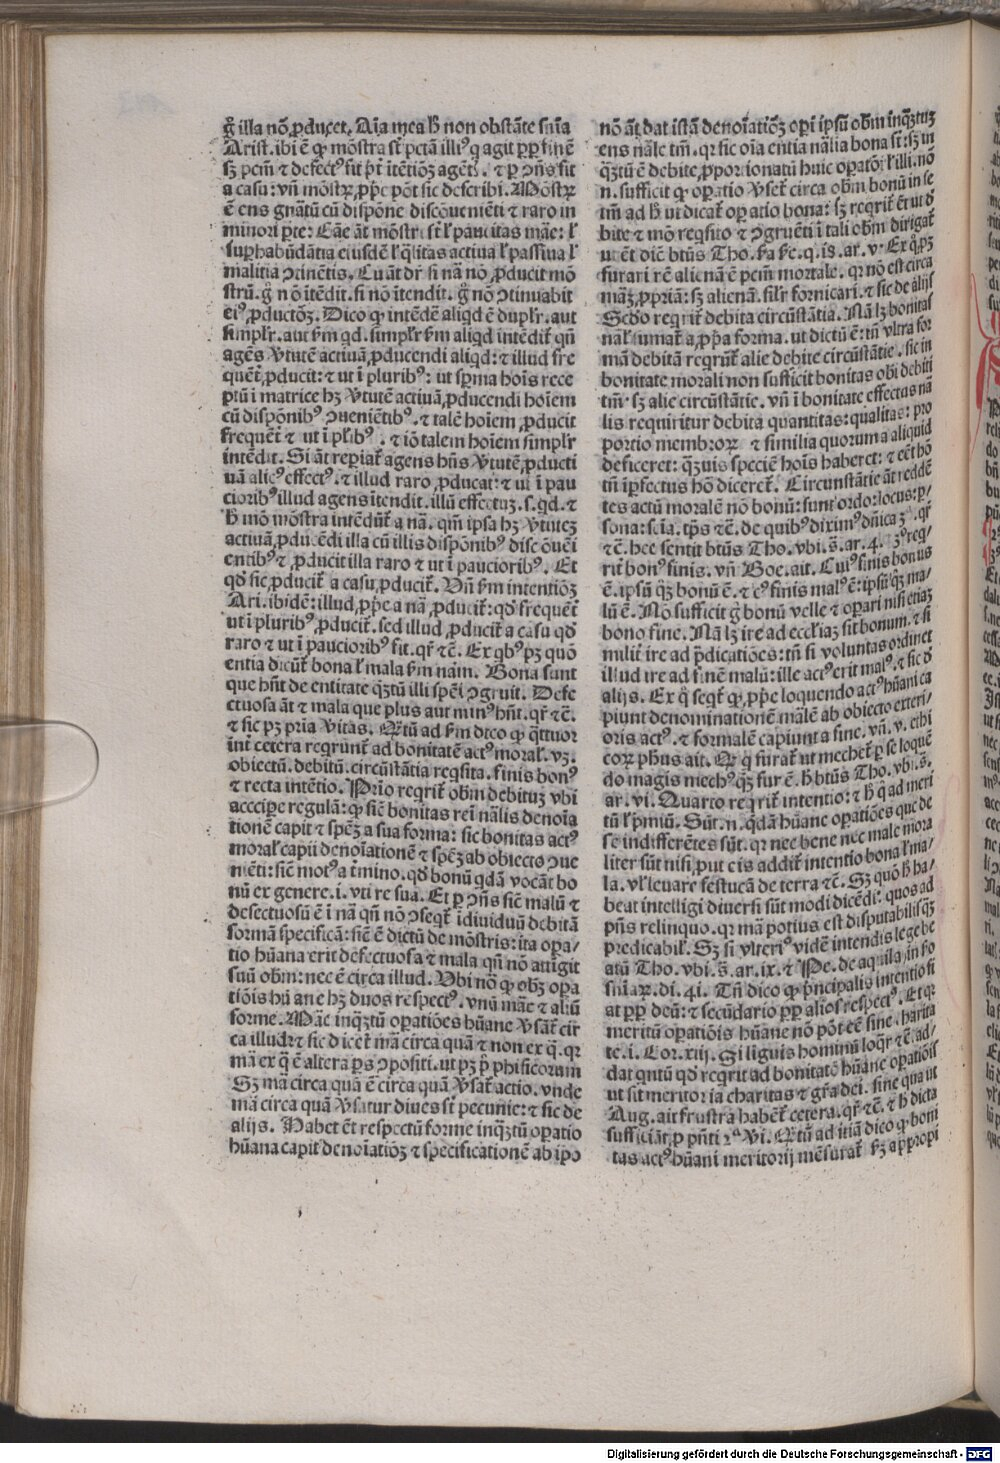 g̊ illa nō ꝓducet. Aīa mea hͦ non obstāte snīa
Arist. ibi ē ꝙ mōstra st̄ pctā illiꝰ q̄ agit ꝓpꝑ finē
sꝫ pctm̄ ⁊ defectꝰ fit p̄t̄ itētiōꝫ agētꝭ. ⁊ ꝑ ꝯn̄s fit
a casu: vn̄ mōstrꝝ ꝓp̄e pōt sic describi. Mōstrꝝ
ē ens gnātū cū dispōne discōueniēti ⁊ raro in
minori ꝑte: Cāe āt mōstri st̄ ł paucitas māe: ł
suꝑhabūdātia eiusdē ł q̄litas actiua ł passiua ł
malitia ꝯtinētis. Cu āt dr̄ si nā nō ꝓducit mō
strū. g̊ nō ītēdit. si nō ītendit. g̊ nō ꝯtinuabit
eiꝰ ꝓductōꝫ. Dico ꝙ intēdē aliqd ē duplr̄. aut
simplr̄. aut ẜm qd. simplr̄ ẜm aliqd intēdit̄ qn̄
agēs v̄tutē actiuā ꝓducendi aliqd: ⁊ illud fre
quēt̄ ꝓducit: ⁊ ut ī pluribꝰ: ut sꝑma hoīs rece
ptū ī matrice hꝫ v̄tutē actiuā ꝓducendi hoīem
cū dispōnibꝰ ꝯueniētibꝰ. ⁊ talē hoīem ꝓducit
frequēt̄ ⁊ ut ī pl̄ibꝰ. ⁊ iō talem hoīem simplr̄
intēdit. Si āt reꝑiat̄ agens hn̄s v̄tutē ꝓducti
uā alicꝰ effectꝰ. ⁊ illud raro ꝓducat: ⁊ ut ī pau
cioribꝰ illud agens ītendit. illū effectuꝫ. s. qd. ⁊
hͦ mō mōstra intēdūt̄ a nā. qm̄ ipsa hꝫ v̄tuteꝫ
actiuā ꝓducēdi illa cū illis dispōnibꝰ discōuēi
entibꝰ ⁊ ꝓducit illa raro ⁊ ut ī paucioribꝰ. Et
qd̄ sic ꝓducit̄ a casu ꝓducit̄. Vn̄ ẜm intentiōꝫ
Ari. ibidē: illud ꝓp̄e a nā ꝓducit̄: qd̄ frequēt̄
ut ī pluribꝰ ꝓducit̄. sed illud ꝓducit̄ a casu qd̄
raro ⁊ ut ī paucioribꝰ fit. qr̄ ⁊c̄. Ex qbꝰ pꝫ quō
entia dicūt̄ bona ł mala ẜm nām. Bona sunt
que hn̄t de entitate qꝫtū illi spēi ꝯgruit. Defe
ctuosa āt ⁊ mala que plus aut minꝰ hn̄t. qr̄ ⁊c̄.
⁊ sic pꝫ p̄ria v̄itas. Q̄tū ad ẜm dico ꝙ q̄ttuor
int̄ cetera reqrunt̄ ad bonitatē actꝰ moral̄. vꝫ.
obiectū. debitū. circūstātia reqsita. finis bonꝰ
⁊ recta intētio. Prīo reqrit̄ obm̄ debituꝫ vbi
accipe regulā: ꝙ sic̄ bonitas rei nālis denoīa
tionē capit ⁊ spēꝫ a sua forma: sic bonitas actꝰ
moral̄ capit denoīationē ⁊ spēꝫ ab obiecto ꝯue
niēti: sic̄ motꝰ a t̄mino. qd̄ bonū qdā vocāt bo
nū ex genere. i. vti re sua. Et ꝑ ꝯn̄s sic̄ malū ⁊
defectuosū ē ī nā qn̄ nō ꝯseqt̄ īdiuiduū debitā
formā specificā: sic̄ ē dictū de mōstris: ita oꝑa/
tio hūana erit defectuosa ⁊ mala qn̄ nō attīgit
suū obm̄: nec ē circa illud. Vbi nō ꝙ obꝫ oꝑa
tiōis hūane hꝫ duos respectꝰ. vnū māe ⁊ aliū
forme. Māe inqꝫtū oꝑatiōes hūane v̄sāt̄ cir
ca illud: ⁊ sic dicet̄ mā circa quā ⁊ non ex q̄. qꝛ
mā ex q̄ ē altera ꝑs ꝯpositi. ut pꝫ p̄ phisicorum
Sꝫ mā circa quā ē circa quā v̄sat̄ actio. vnde
mā circa quā v̄satur diues st̄ pecunie: ⁊ sic de
alijs. Habet ēt respectū forme inqꝫtū oꝑatio
hūana capit denoīatiōꝫ ⁊ specificationē ab ipo
nō āt dat istā denoīatiōꝫ oꝑi ipsū obm̄ inqꝫtuꝫ
ens nāle tm̄. qꝛ sic oīa entia nālia bona st̄: sꝫ in
qꝫtū ē debite ꝓportionatū huic oꝑatōi ł illi. nō
.n. sufficit ꝙ oꝑatio v̄set̄ circa obm̄ bonū in se
tm̄ ad hͦ ut dicat̄ oꝑatio bona: sꝫ reqrit̄ ēt ut d̄
bite ⁊ mō reqsito ⁊ ꝯgruēti ī tali obm̄ dirigat̄
ut ēt dic̄ btūs Tho. ẜa ẜe. q. is. ar. v. Ex q̊ pꝫ
furari rē alienā ē pctm̄ mortale. qꝛ nō est circa
māꝫ ꝓpriā: sꝫ alienā. sil̄r fornicari. ⁊ sic de alijs
Scd̄o reqrit̄ debita circūstātia. Nā lꝫ bonitas
nāl̄ sumat̄ a ꝓp̄a forma. ut dictū ē: tn̄ vltra for
mā debitā reqrūt̄ alie debite circūstātie. sic in
bonitate morali non sufficit bonitas obi debiti
tm̄. sꝫ alie circūstātie. vn̄ ī bonitate effectus nā
lis requiritur debita quantitas: qualitas: pro
portio membrorꝝ ⁊ similia quorum a aliquid
deficeret: qꝫuis speciē hoīs haberet: ⁊ eēt hō
tn̄ īꝑfectus hō diceret̄. Circunstātie āt reddē
tes actū moralē nō bonū: sunt ordo: locus: ꝑ/
sona: scīa. tp̄s ⁊c̄. de quibꝰ diximꝰ dn̄ica 3ª. qr̄
⁊c̄. hec sentit btūs Tho. vbi. s̄. ar. 4. 3º req
rit̄ bonꝰ finis. vn̄ Boe. ait. Cuiꝰ finis bonus
ē. ipsū qꝫ bonū ē. ⁊ cꝰ finis malꝰ ē: ipsū qꝫ ma/
lū ē. Nō sufficit g̊ bonū velle ⁊ oꝑari nisi etiaꝫ
bono fine. Nā lꝫ ire ad ecclīaꝫ sit bonum. ⁊ si
milit̄ ire ad p̄dicatiōes: tn̄ si voluntas ordinet
illud ire ad finē malū: ille actꝰ erit malꝰ. ⁊ sic d̄
alijs. Ex q̊ seqt̄ ꝙ ꝓp̄e loquendo actꝰ hūani ca
piunt denominationē mālē ab obiecto exteri/
oris actꝰ. ⁊ formalē capiunt a fine. vn̄. v. ethi
corꝝ phūs ait. Q̄ q̊ furat̄ ut mechet̄ ꝑ se loquē
do magis mechꝰ qꝫ fur ē. hͦ btūs Tho. vbi. s̄.
ar. vi. Quarto reqrit̄ intentio: ⁊ hͦ q̊ ad meri
tū ł p̄miū. Sūt. n. qdā hūane oꝑatiōes que de
se indifferētes sūt. qꝛ nec bene nec male mora
liter sūt nisi ꝓut eis addit̄ intentio bona ł ma/
la. vł leuare festucā de terra ⁊c̄. Sꝫ quō hͦ ha/
beat intelligi diuersi sūt modi dicēdi: quos ad
pn̄s relinquo. qꝛ mā potius est disputabilis qꝫ
predicabil̄. Sꝫ si vlteriꝰ vidē intendis lege be
atū Tho. vbi. s̄. ar. ix. ⁊ Pe. de aquila in ẜo
snīaꝝ. di. 4i. Tn̄ dico ꝙ p̄ncipalis intentio fi
at ꝓꝑ deū: ⁊ secūdario ꝓꝑ alios respectꝰ. Et qꝛ
meritū oꝑatiōis hūane nō pōt eē sine charita
te. i. Cor. xiij. Si liguis hominū loqr̄ ⁊c̄. ad/
dat qntū qd̄ reqrit̄ ad bonitatē hūane oꝑatiōis
ut sit meritoria charitas ⁊ gr̄a dei. sine qua ut
Aug. ait frustra habēt̄ cetera. qr̄ ⁊c̄. ⁊ hͦ dicta
sufficiāt ꝓ pn̄ti 2ª v̄i. Q̄tū ad itiā dico ꝙ boni
tas actꝰ hūani meritorij mēsurat̄ ẜꝫ a ꝓpropi
Digitalisierung gefördert durch die Deutsche Forschungsgemeinschaft - DFG